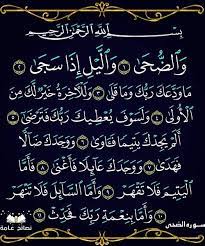 بِسْمِ اللَّهِ الرَّحْمَٰنِ الرَّحِيمِ
وَالضُّحَىٰ ١ وَاللَّيْلِ إِذَا سَجَىٰ ٢
مَا وَدَّعَكَ رَبُّكَ وَمَا قَلَىٰ ٣ وَلَلْآخِرَةُ خَيْرٌ لَّكَ مِنَ
الْأُولَىٰ ٤ وَلَسَوْفَ يُعْطِيكَ رَبُّكَ فَتَرْضَىٰ ٥
أَلَمْ يَجِدْكَ يَتِيمًا فَآوَىٰ ٦ وَوَجَدَكَ ضَالًّا
فَهَدَىٰ ٧ وَوَجَدَكَ عَائِلًا فَأَغْنَىٰ ٨ فَأَمَّا
الْيَتِيمَ فَلَا تَقْهَرْ ٩ وَأَمَّا السَّائِلَ فَلَا تَنْهَرْ
١٠ وَأَمَّا بِنِعْمَةِ رَبِّكَ فَحَدِّثْ ١١
سورة الضحى
نصائح عامة